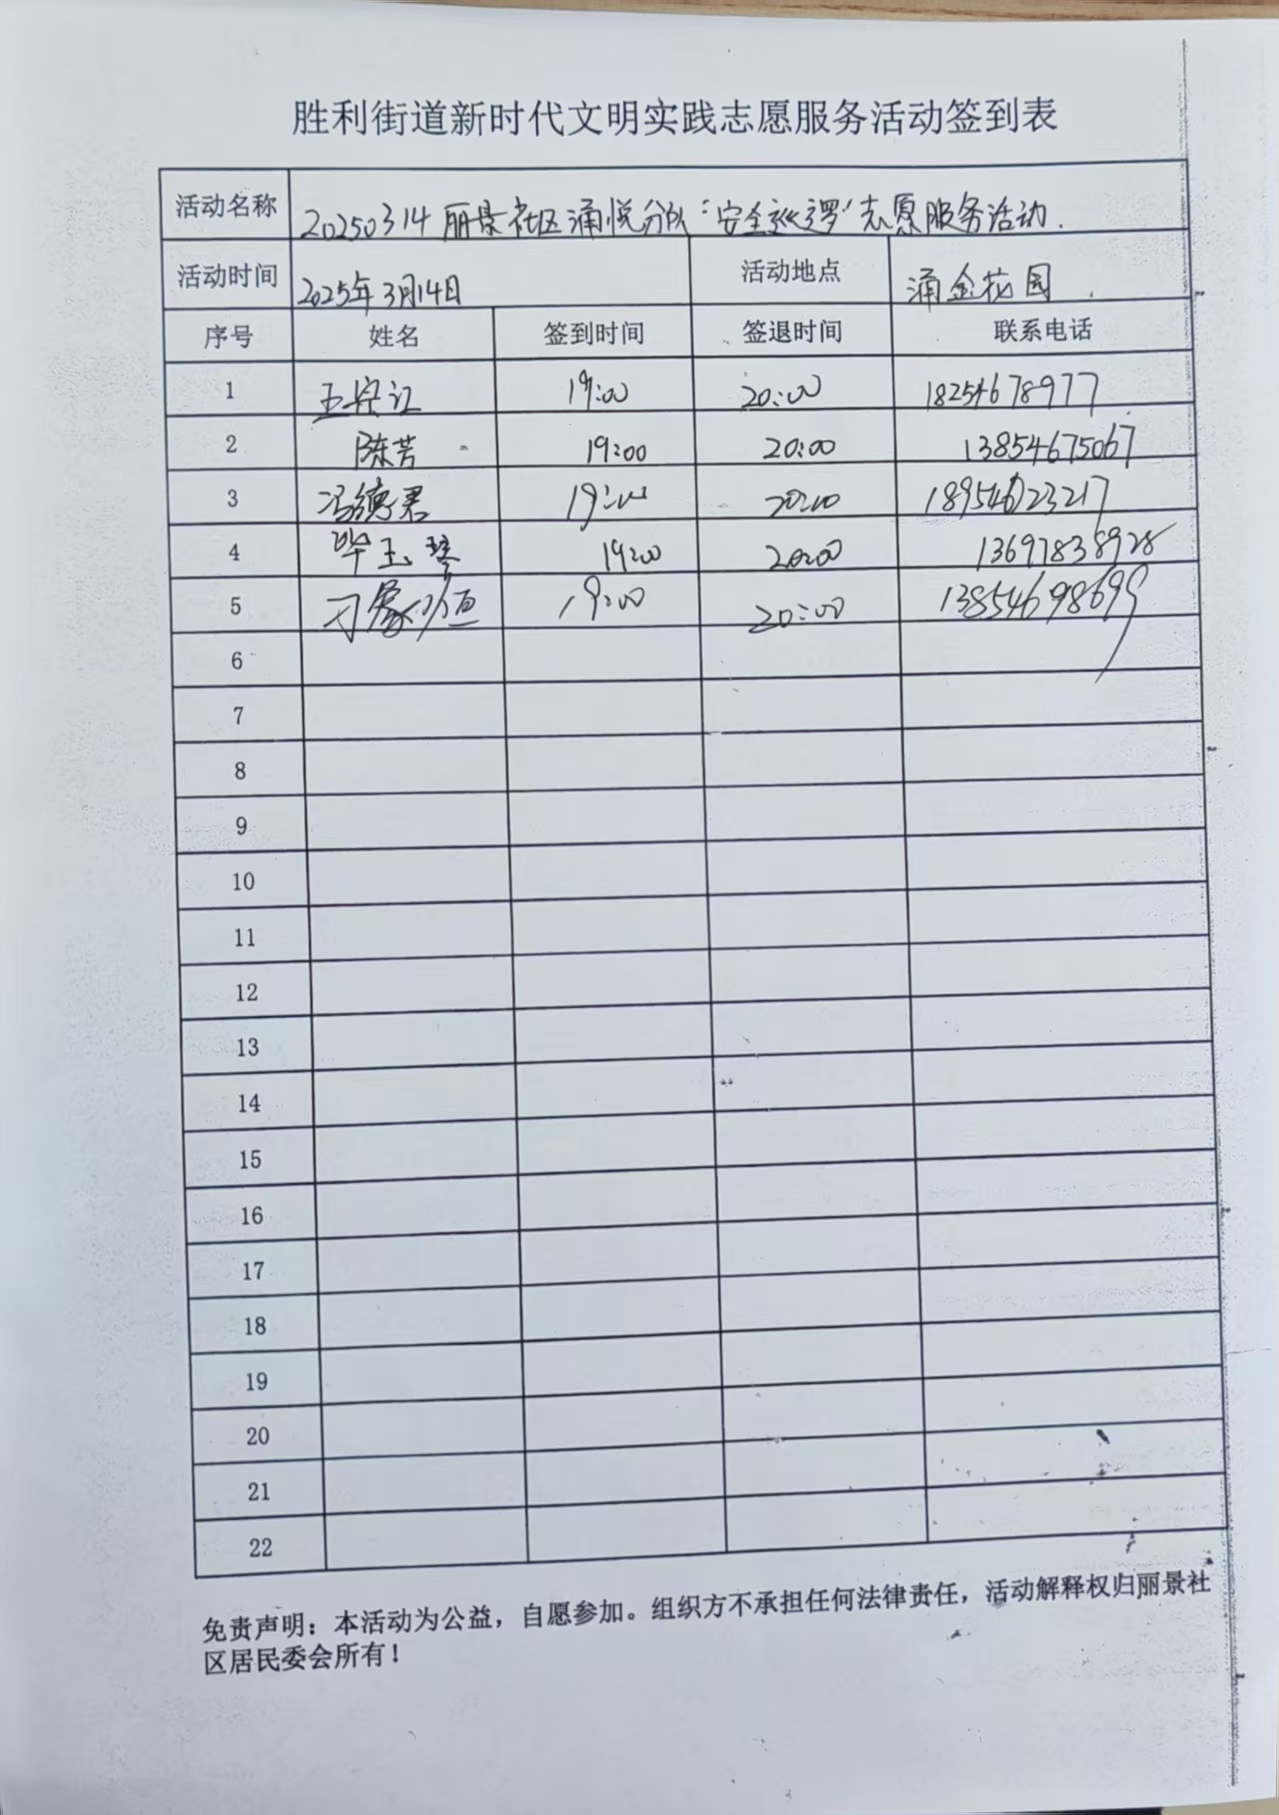 胜利街道新时代文明实践志愿服务活动签到表
活动名称 20250314丽景社区涌悦分队“安全巡逻”志愿服务活动.
活动时间 2025年3月14日 活动地点 涌金花园.
序号 姓名 签到时间 签退时间 联系电话
1 19:00 20:00 18254678977
2 陈芳 19:00 20:00 13854675067
3 冯德君 19:00 20:00 18954623217
4 毕玉琴 19:00 20:00 13697838928
5 刁象恒 19:00 20:00 13854698699
6
7
8
9
10
11
12
13
14
15
16
17
18
19
20
21
22
免责声明：本活动为公益，自愿参加。组织方不承担任何法律责任，活动解释权归丽景社
区居民委会所有！